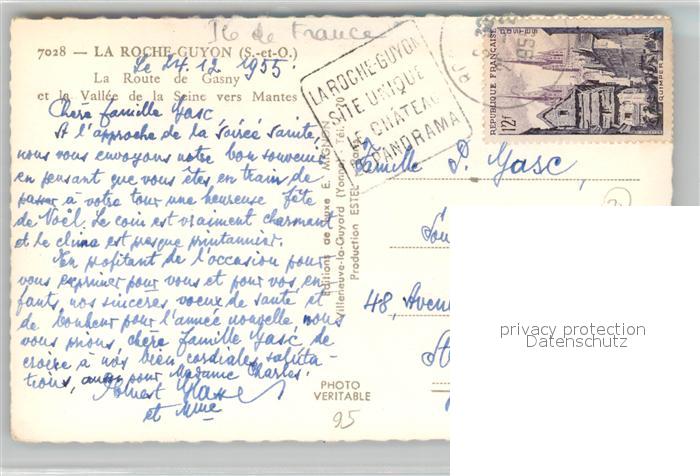 Ile de France
7028 — LA ROCHE-GUYON (S.-et-O.)
Le 24.12 1955.
La Route de Gasny
et la Vallée de la Seine vers Mantes
Chère famille Gasc,
A l'approche de la soirée sainte,
nous vous envoyons notre bon souvenir
en pensant que vous êtes en train de
passer à votre tour une heureuse fête
de Noël. Le coin est vraiment charmant
et le climat est presque printannier.
En profitant de l'occasion pour
vous exprimer pour vous et pour vos en-
fants, nos sincères voeux de santé et
de bonheur pour l'année nouvelle nous
vous prions, chère famille Gasc, de
croire à nos bien cordiales saluta-
tions, aussi pour Madame Charles.
et Mme
LA ROCHE-GUYON
SITE UNIQUE
LE CHATEAU
PANORAMA
RÉPUBLIQUE FRANÇAISE
12F
QUIMPER
Editions de luxe E. MIGNON
Villeneuve-la-Guyard (Yonne) Tél.: 20
Production ESTEL
Famille P. Gasc,
48, Avenu
PHOTO
VERITABLE
95
privacy protection
Datenschutz